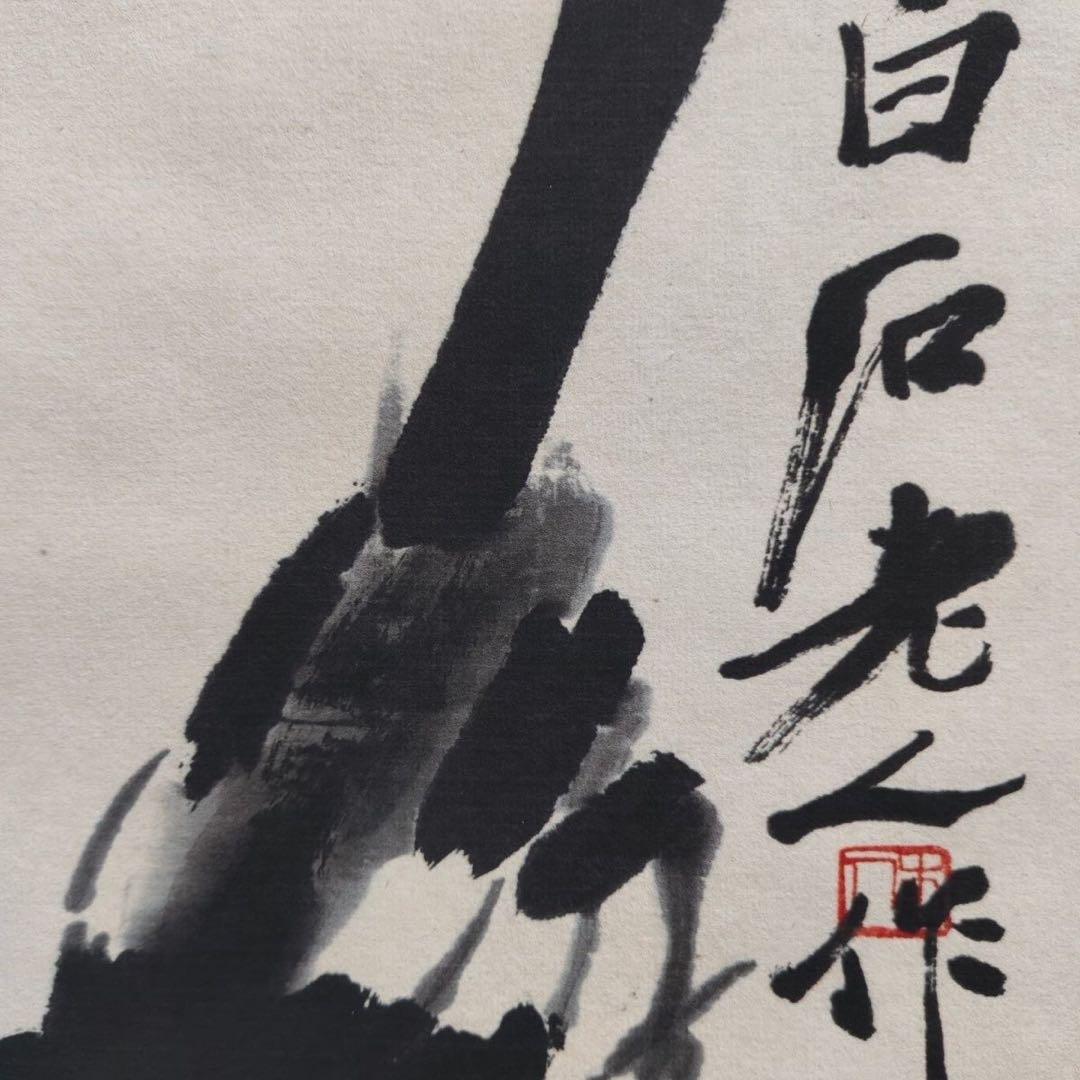 白石老人作